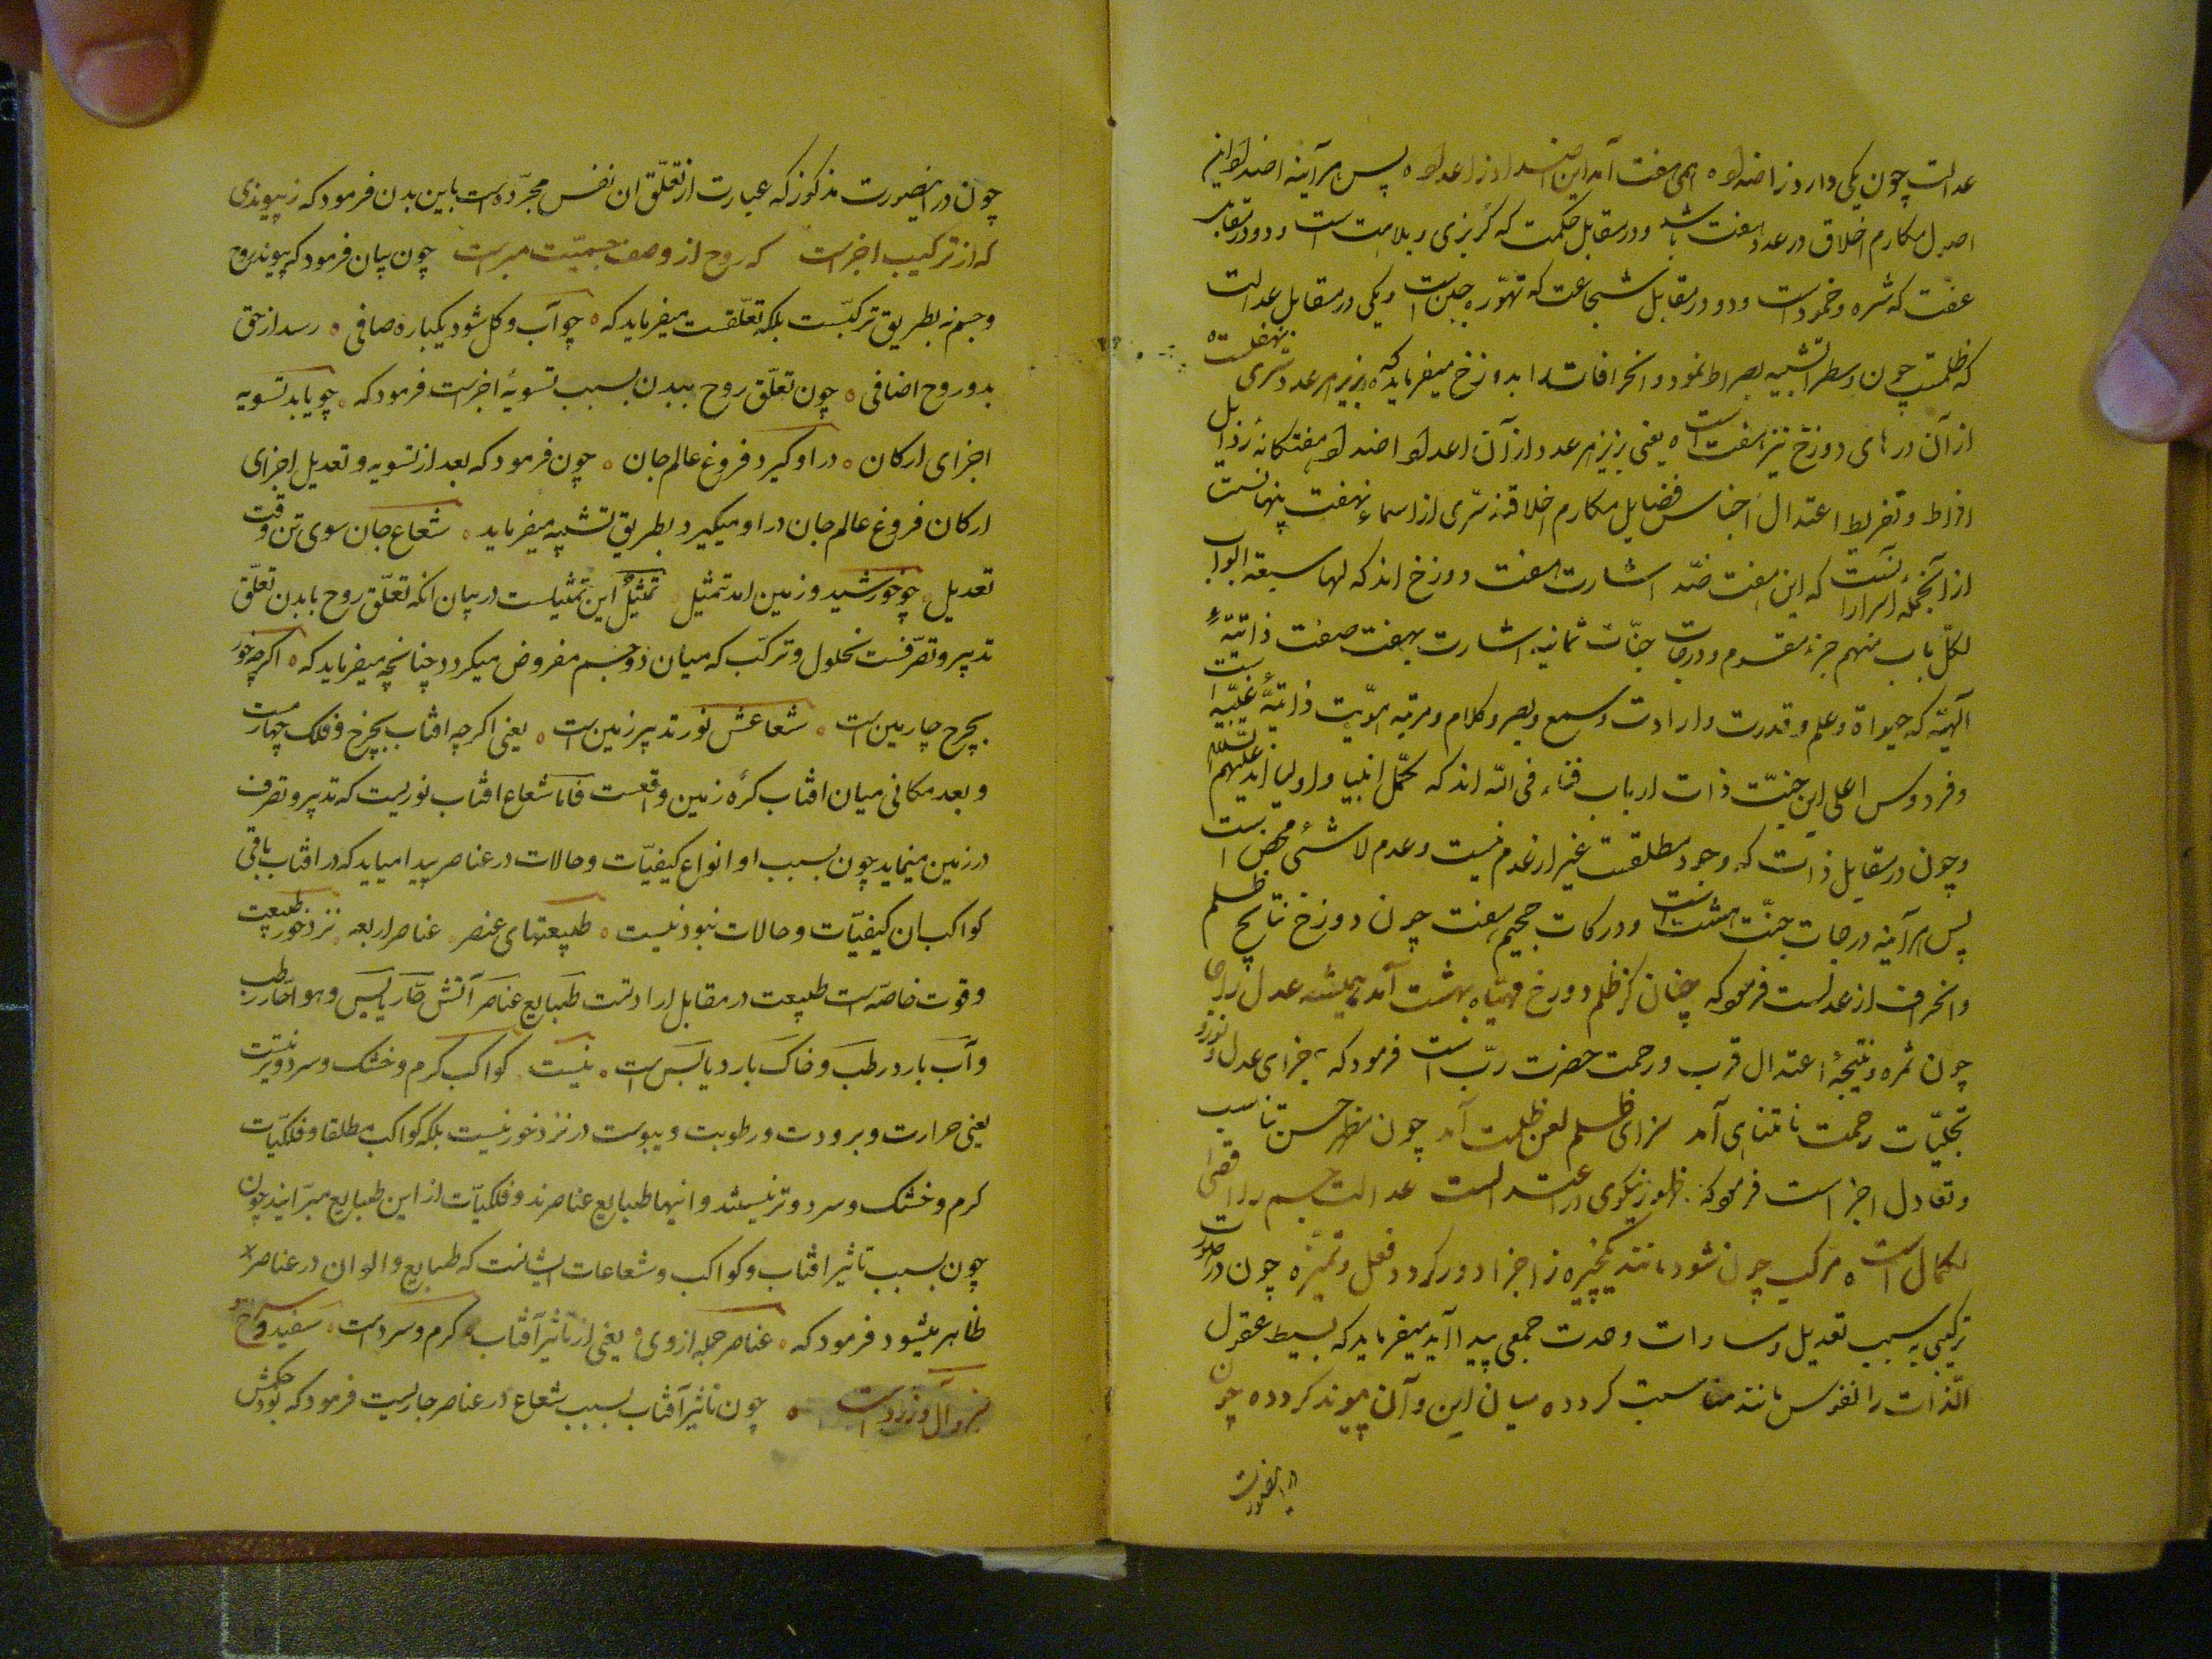 عدالت چون یکی دارد ز اضداد ه همی هفت آمد این اضداد ز اعداد ه پس هرآینه اضداد این
اصول مکارم اخلاق در عدد هفت باشد و در مقابل حکمت که کربزی و بلاهت است و دو در مقابل
عفّت که شره و خمود است و دو در مقابل شجاعت که تهوّر و جبن است و یکی در مقابل عدالت
که ظلمست چون وسط را تشبیه بصراط نمود و انحرافات را بدوزخ میفرماید که ه بزیر هر عدد سّری نهفتست
از آن درهای دوزخ نیز هفت است ه یعنی بزیر هر عدد از آن اعداد اضداد هفتکانهٔ رذایل
افراط و تفریط اعتدال اجناس فضایل مکارم اخلاق سّری از اسماء نهفت پنهانست
از آنجمله اسرار آنست که این هفت ضّد اشارت بهفت دوزخ اند که لها سبعة ابواب
لکلّ باب منهم جزء مقسوم و درجات جنّات ثمانیه اشارت بهفت صفت ذاتیّهٔ
الٓهیّه که حیوة و علم و قدرت و ارادت و سمع و بصر و کلام و مرتبه هویّت ذاتیّهٔ غیبّیه است
و فردوس اعلی این جنّت ذات ارباب فناء فی اللّه اند که کمّل انبیا و اولیا اند علیهم السلام
و چون در مقابل ذات که وجود مطلقست غیر از عدم نیست و عدم لاشئی محض است
پس هرآینه درجات جنّت هشت است و درکات جحیم هفت چون دوزخ نتایج ظلم
و انحراف از عدلست فرمود که چنان کز ظلم دوزخ مهیّا ه بهشت آمد همیشه عدل را جا
چون ثمره و نتیجهٔ اعتدال قرب و رحمت حضرت ربّ است فرمود که ه جزای عدل نور و
تجلیّات رحمت نامتناهی آمد سزای ظلم لعن و ظلمت آمد چون مظهر حسن تناسب
و تعادل اجزاست فرمود که ظهور نیکوی در اعتدالست عدالت جسم را اقصی
الکمال است ه مرکب چون شود مانند یکچیز ه ز اجزا دور کردد فعل و تمیز ه چون در صورت
ترکیبی به سبب تعدیل و مساوات وحدت جمعی پیدا آید میفرماید که بسیط
الذّات را مانند کردد ه میان این و آن پیوند کردد ه چون
در اینصورت
چون در اینصورت مذکور که عبارت از تعلّق ان نفس مجرّده است باین بدن فرمود که نه پیوندی
که از ترکیب اجزاست که روح از وصف جسمیّت مبراست چون بیان فرمود که پیوند روح
و جسم نه بطریق ترکّبست بلکه تعلّقست میفرماید که ه چو آب و کل شود یکباره صافی ه رسد از حق
بدو روح اضافی ه چون تعلّق روح ببدن بسبب تسویهٔ اجزاست فرمود که ه چو یابد تسویه
اجزای ارکان ه در او کیرد فروغ عالم جان ه چون فرمود که بعد از تسویه و تعدیل اجزای
ارکان فروغ عالم جان در او میکیرد بطریق تشبیه میفرماید ه شعاع جان سوی تن وقت
تعدیل ه چو خورشید و زمین آمد تمثیل ه این تمثیلیست در بیان انکه تعلّق روح با بدن تعلّق
تدبیر و تصرّفست نه حلول و ترکّب که میان دو جسم مفروض میکردد چنانچه میفرماید که ه اکرچه خور
بچرخ چارمین است ه شعاعش نور تدبیر زمین است ه یعنی اکرچه افتاب بچرخ و فلک چهارمست
و بعد مکانی میان افتاب و کرهٔ زمین واقعست فاما شعاع افتاب نوریست که تدبیر و تصرف
در زمین مینماید چون بسبب او انواع کیفیّات و حالات در عناصر پیدا میاید که در افتاب و باقی
کواکب ان کیفیّات و حالات نبود نیست ه طبیعتهای عنصر ه عناصر اربعه ه نزد خور طبیعت
و قوت خاصّه است طبیعت در مقابل ارادتست طبایع عناصر آتش حارّ یابس و هوا حارّ رطب
و آب بارد رطب و خاک بارد یابس است ه نیست ه کواکب کرم و خشک و سرد و تر نیست
یعنی حرارت و برودت و رطوبت و یبوست در نزد خور نیست بلکه کواکب مطلقا و فلکیّات
کرم و خشک و سرد و تر نیستند و اینها طبایع عناصرند و فلکیّات از این طبایع مبرّایند چون
چون بسبب تاثیر افتاب و کواکب و شعاعات ایشانست که طبایع و الوان در عناصر
ظاهر میشود فرمود که ه عناصر جمله از وی ه یعنی از تاثیر آفتاب ه کرم و سرد است ه سفید و سرخ
سبز و آل و زرد است ه چون تاثیر آفتاب بسبب شعاع در عناصر جاریست فرمود که بود حکمش